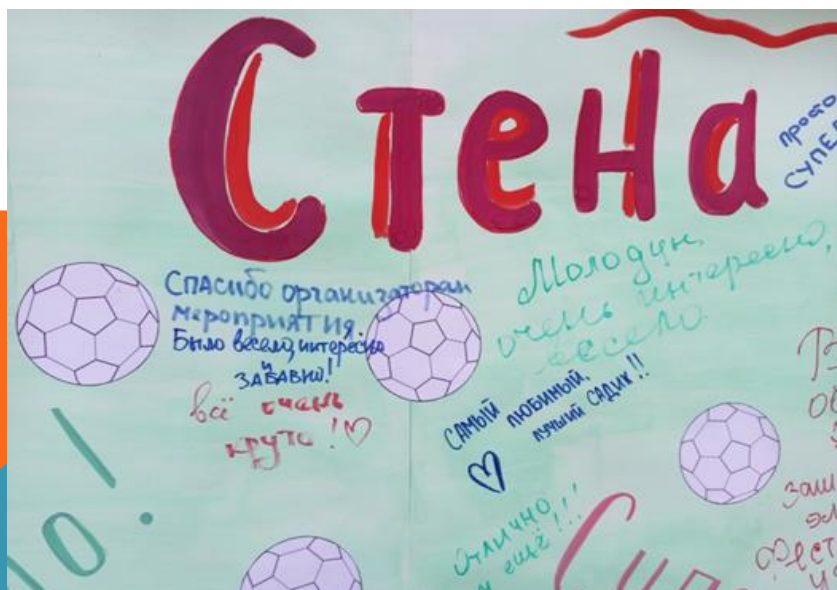 Стена
просто
СУПЕР
Спасибо организаторам
мероприятия.
Было весело, интересно
и
ЗАБАВНО!
всё очень
круто!♡
Молодцы,
очень интересно,
весело.
САМЫЙ ЛЮБИМЫЙ,
лучший САДИК!!
♡
Отлично
и ещё!!!
ю!